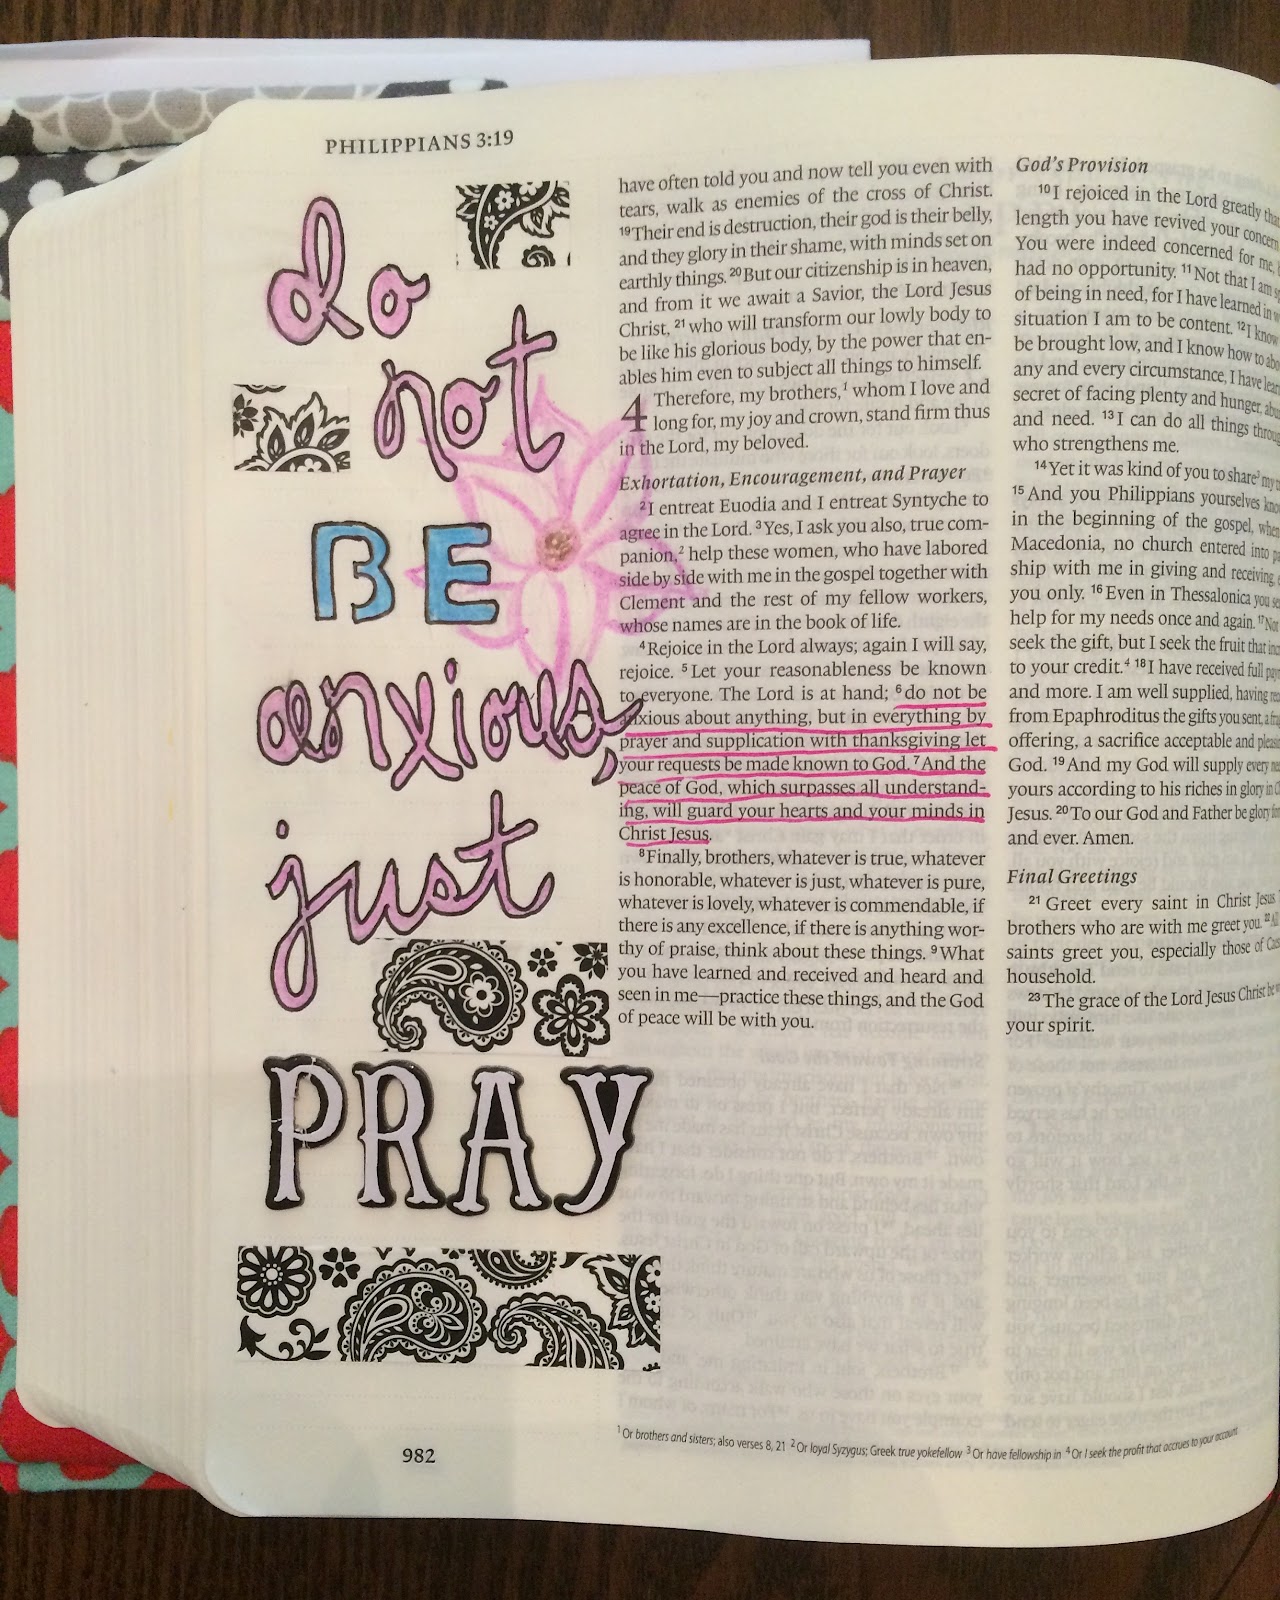 PHILIPPIANS 3:19
do
not
BE
anxious,
just
PRAY
have often told you and now tell you even with
tears, walk as enemies of the cross of Christ.
19 Their end is destruction, their god is their belly,
and they glory in their shame, with minds set on
earthly things. 20 But our citizenship is in heaven,
and from it we await a Savior, the Lord Jesus
Christ, 21 who will transform our lowly body to
be like his glorious body, by the power that en-
ables him even to subject all things to himself.
4 Therefore, my brothers,1 whom I love and
long for, my joy and crown, stand firm thus
in the Lord, my beloved.
Exhortation, Encouragement, and Prayer
2 I entreat Euodia and I entreat Syntyche to
agree in the Lord. 3 Yes, I ask you also, true com-
panion,2 help these women, who have labored
side by side with me in the gospel together with
Clement and the rest of my fellow workers,
whose names are in the book of life.
4 Rejoice in the Lord always; again I will say,
rejoice. 5 Let your reasonableness be known
to everyone. The Lord is at hand; 6 do not be
anxious about anything, but in everything by
prayer and supplication with thanksgiving let
your requests be made known to God. 7 And the
peace of God, which surpasses all understand-
ing, will guard your hearts and your minds in
Christ Jesus.
8 Finally, brothers, whatever is true, whatever
is honorable, whatever is just, whatever is pure,
whatever is lovely, whatever is commendable, if
there is any excellence, if there is anything wor-
thy of praise, think about these things. 9 What
you have learned and received and heard and
seen in me—practice these things, and the God
of peace will be with you.
God's Provision
10 I rejoiced in the Lord greatly that
length you have revived your concern
You were indeed concerned for me,
had no opportunity. 11 Not that I am
of being in need, for I have learned in
situation I am to be content. 12 I know
be brought low, and I know how to
any and every circumstance, I have
secret of facing plenty and hunger,
and need. 13 I can do all things
who strengthens me.
14 Yet it was kind of you to share3 my
15 And you Philippians yourselves
in the beginning of the gospel, when
Macedonia, no church entered into
ship with me in giving and receiving,
you only. 16 Even in Thessalonica you
help for my needs once and again. 17 Not
seek the gift, but I seek the fruit that
to your credit.4 18 I have received full
and more. I am well supplied, having
from Epaphroditus the gifts you sent, a
offering, a sacrifice acceptable and
God. 19 And my God will supply every
yours according to his riches in glory in
Jesus. 20 To our God and Father be glory
and ever. Amen.
Final Greetings
21 Greet every saint in Christ Jesus
brothers who are with me greet you. 22
saints greet you, especially those of
household.
23 The grace of the Lord Jesus Christ be
your spirit.
1 Or brothers and sisters; also verses 8, 21 2 Or loyal Syzygus; Greek true yokefellow 3 Or have fellowship in 4 Or I seek the profit that accrues to your account
982